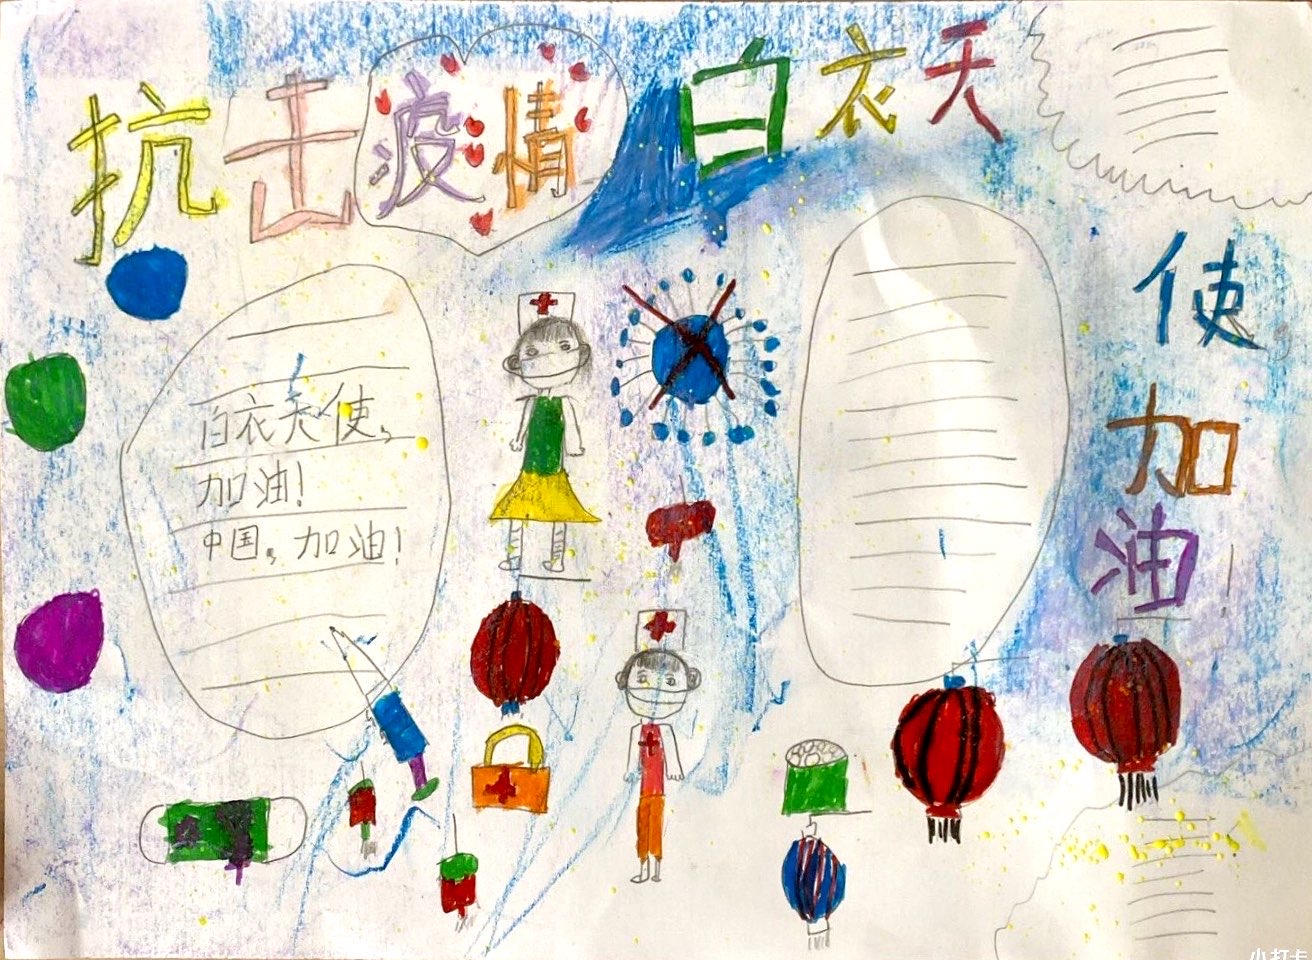 抗击疫情 白衣天
使
加
油
白衣天使,
加油!
中国,加油!
小打卡